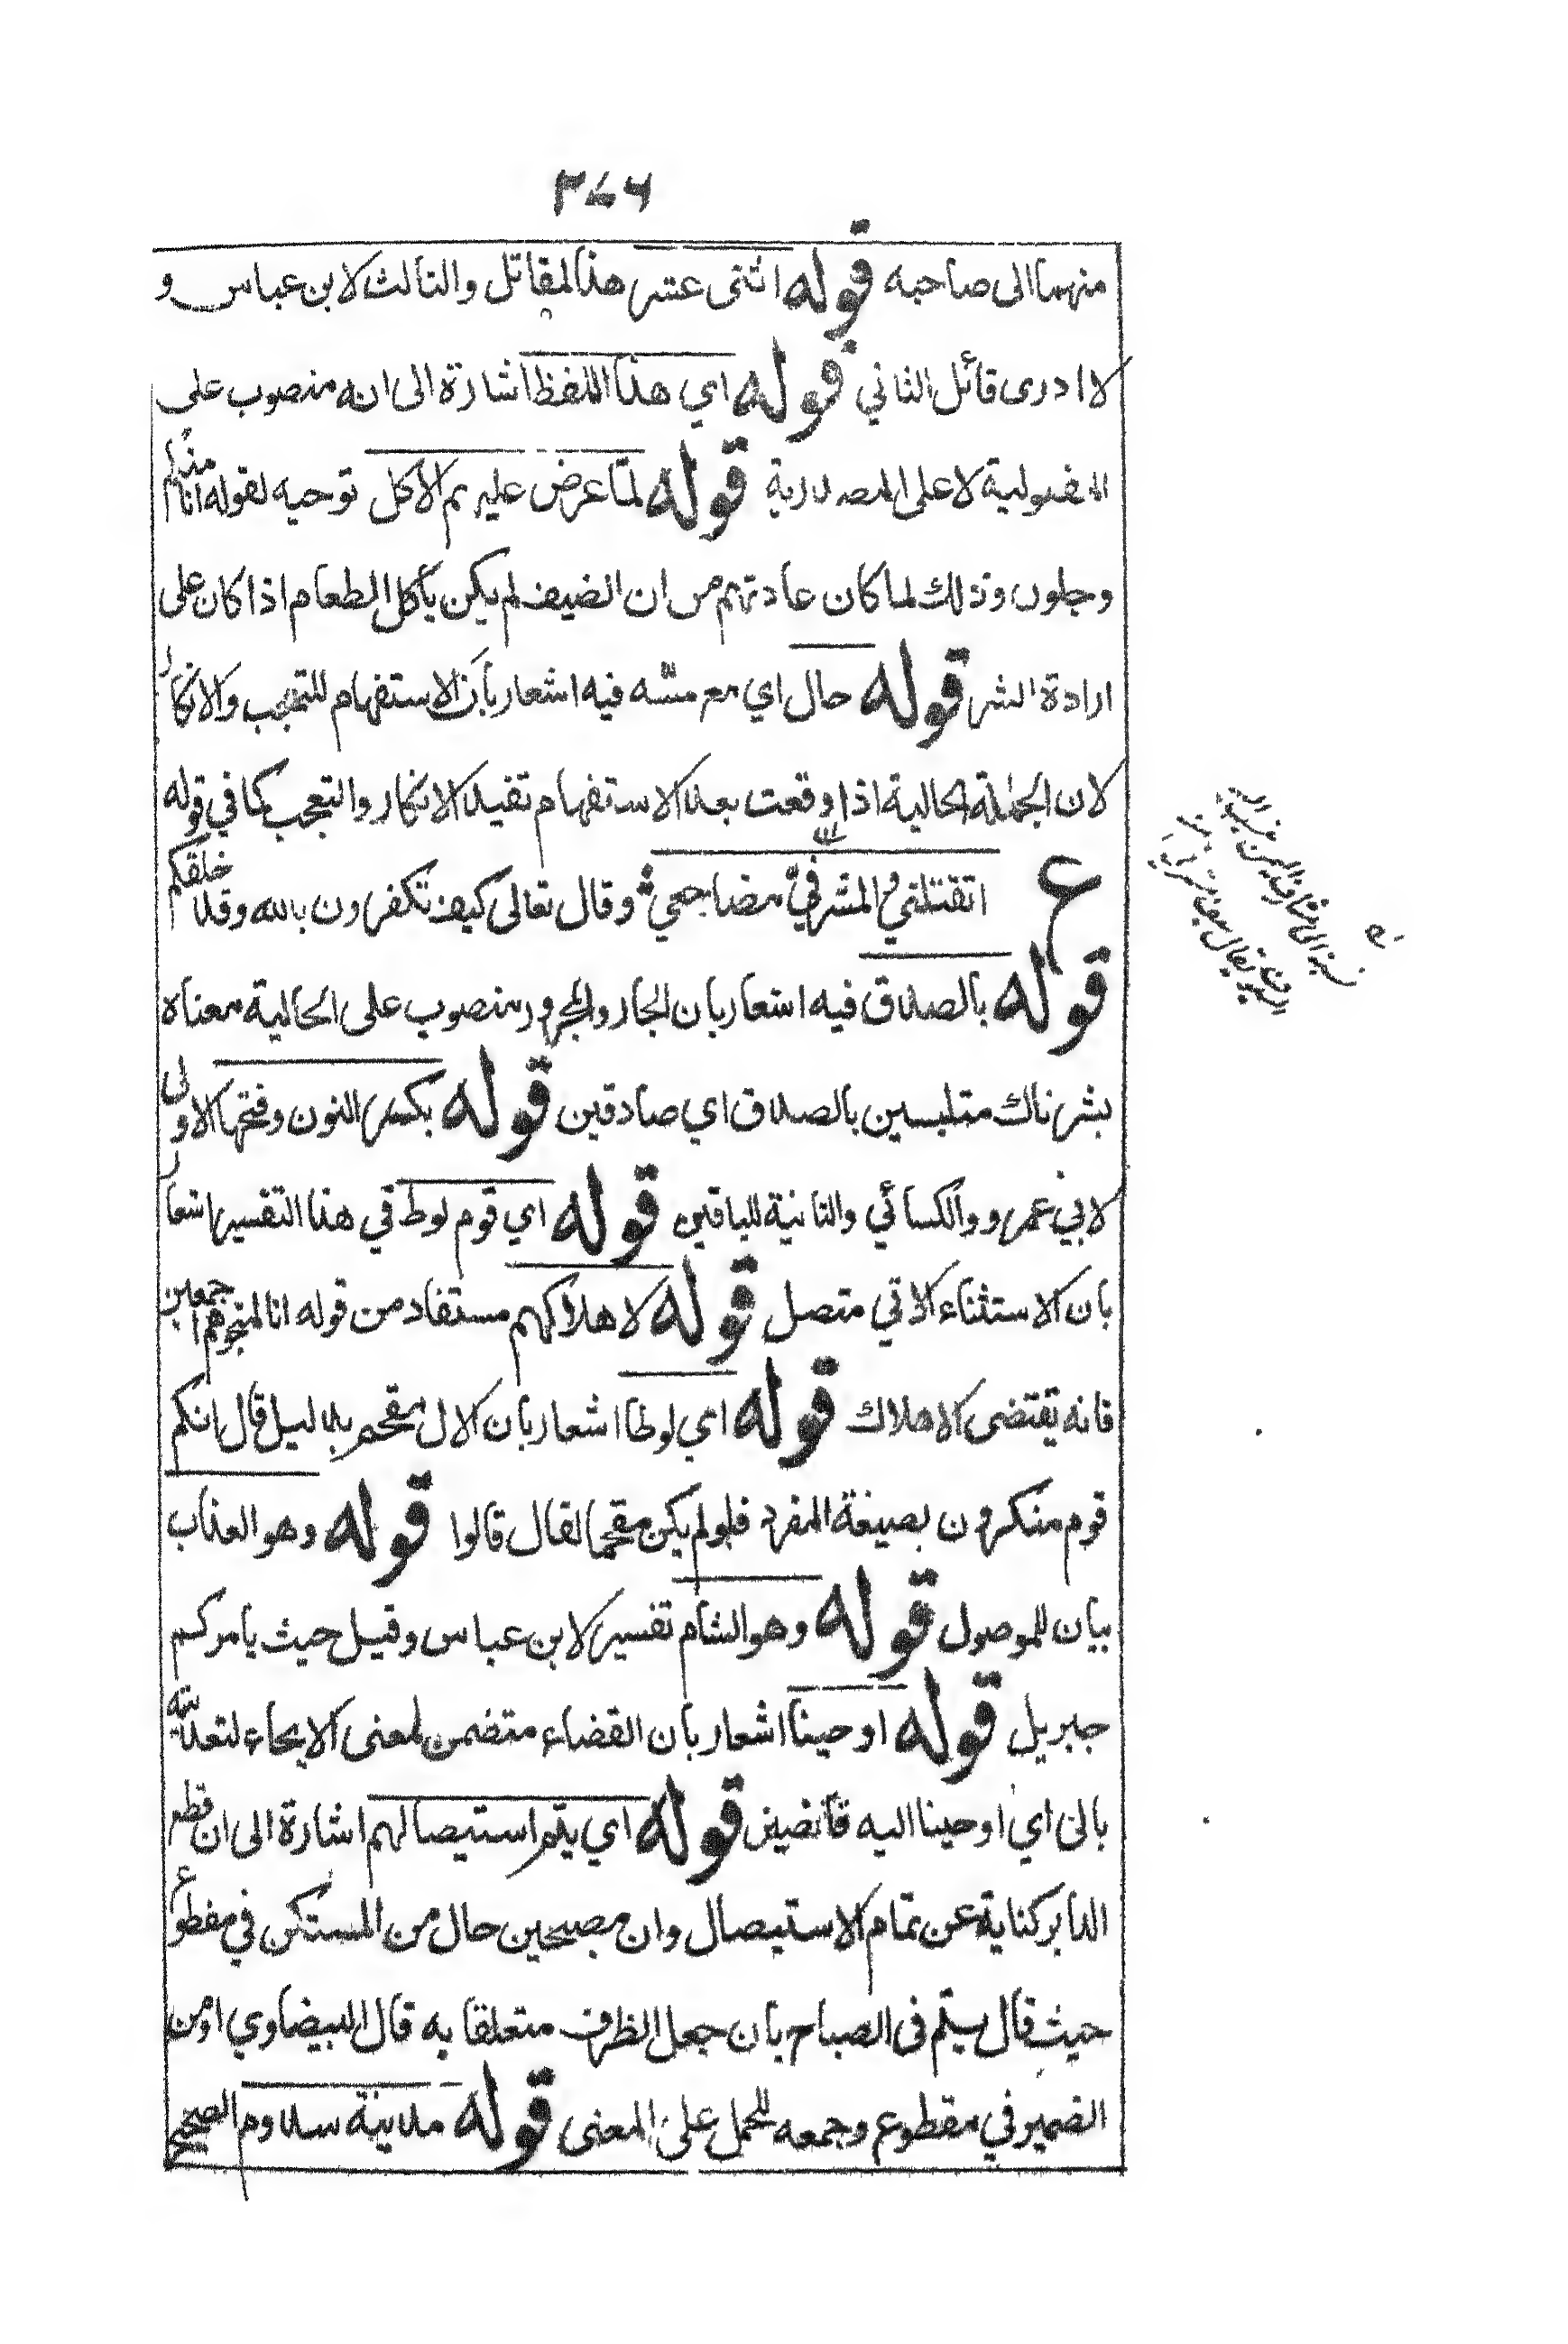 ٣٧٦
منهما الى صاحبه قوله اثنى عشر هذا لمقاتل والثالث لابن عباس و
لا ادرى قائل الثاني قوله اي هذا اللفظ اشارة الى انه منصوب على
المفعولية لا على المصدرية قوله لمّا عرض عليهم الاكل توجيه لقوله انا منكم
وجلون وذلك لما كان عادتهم من ان الضيف لم يكن يأكل الطعام اذا كان على
ارادة الشر قوله حال اي مع مسّه فيه اشعار بأن الاستفهام للتعجب والانكار
لان الجملة الحالية اذا وقعت بعد الاستفهام تفيد الانكار والتعجب كما في قوله
ع اتقتلني والمشرفيّ مضاجعي وقال تعالى كيف تكفرون بالله وقد خلقكم
قوله بالصدق فيه اشعار بان الجار والمجرور منصوب على الحالية معناه
بشرناك متلبسين بالصدق اي صادقين قوله بكسر النون وفتحها الاولى
لابي عمرو والكسائي والثانية للباقين قوله اي قوم لوط في هذا التفسير اشعار
بان الاستثناء الاتي متصل قوله لاهلاكهم مستفاد من قوله انا لمنجوهم اجمعين
فانه يقتضى الاهلاك قوله اي لوطا اشعار بان الال مقحم بدليل قال انكم
قوم منكرون بصيغة المفرد فلو لم يكن مقحما لقال قالوا قوله وهو العذاب
بيان للموصول قوله وهو الشام تفسير لابن عباس وقيل حيث يامركم
جبريل قوله اوحينا اشعار بان القضاء متضمن لمعنى الايحاء لتعديته
بالى اي اوحينا اليه قوله اي يتم استيصالهم اشارة الى ان قطع
الدابر كناية عن تمام الاستيصال وان مصبحين حال من المستكن في مقطوع
حيث قال يتم فى الصباح بان جعل الظرف متعلقا به قال البيضاوي او من
الضمير في مقطوع وجمعه للحمل على المعنى قوله مدينة سدوم الصحيح